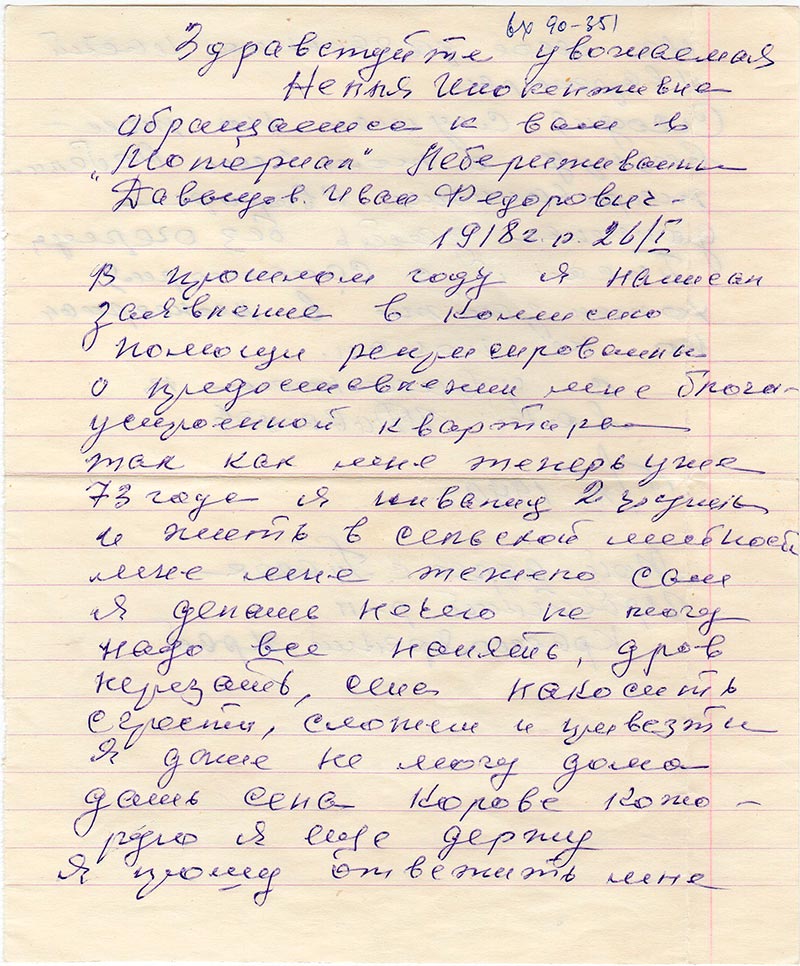 вх 90-351
Здравствуйте уважаемая
Нелля Инокентивна
обращаетса к вам в
"Мотериал" Небериживаты
Давыдов. Иван Федорович-
1918 г. р. 26/I
В прошлом году я написал
заявление в комисию
помощи реприсированны
о предоставлении мне блога-
устроенной квартире
так как мне теперь уже
73 года я инвалид 2 группы
и жить в сельской месности
мне мне тежело сам
я делать нечего не могу
надо все нанять, дров
нерезать, сена накосить
сгрости, сложит и привезти
Я даже не могу дома
дать сена корове кото-
рую я еще держу
Я прошу ответить мне